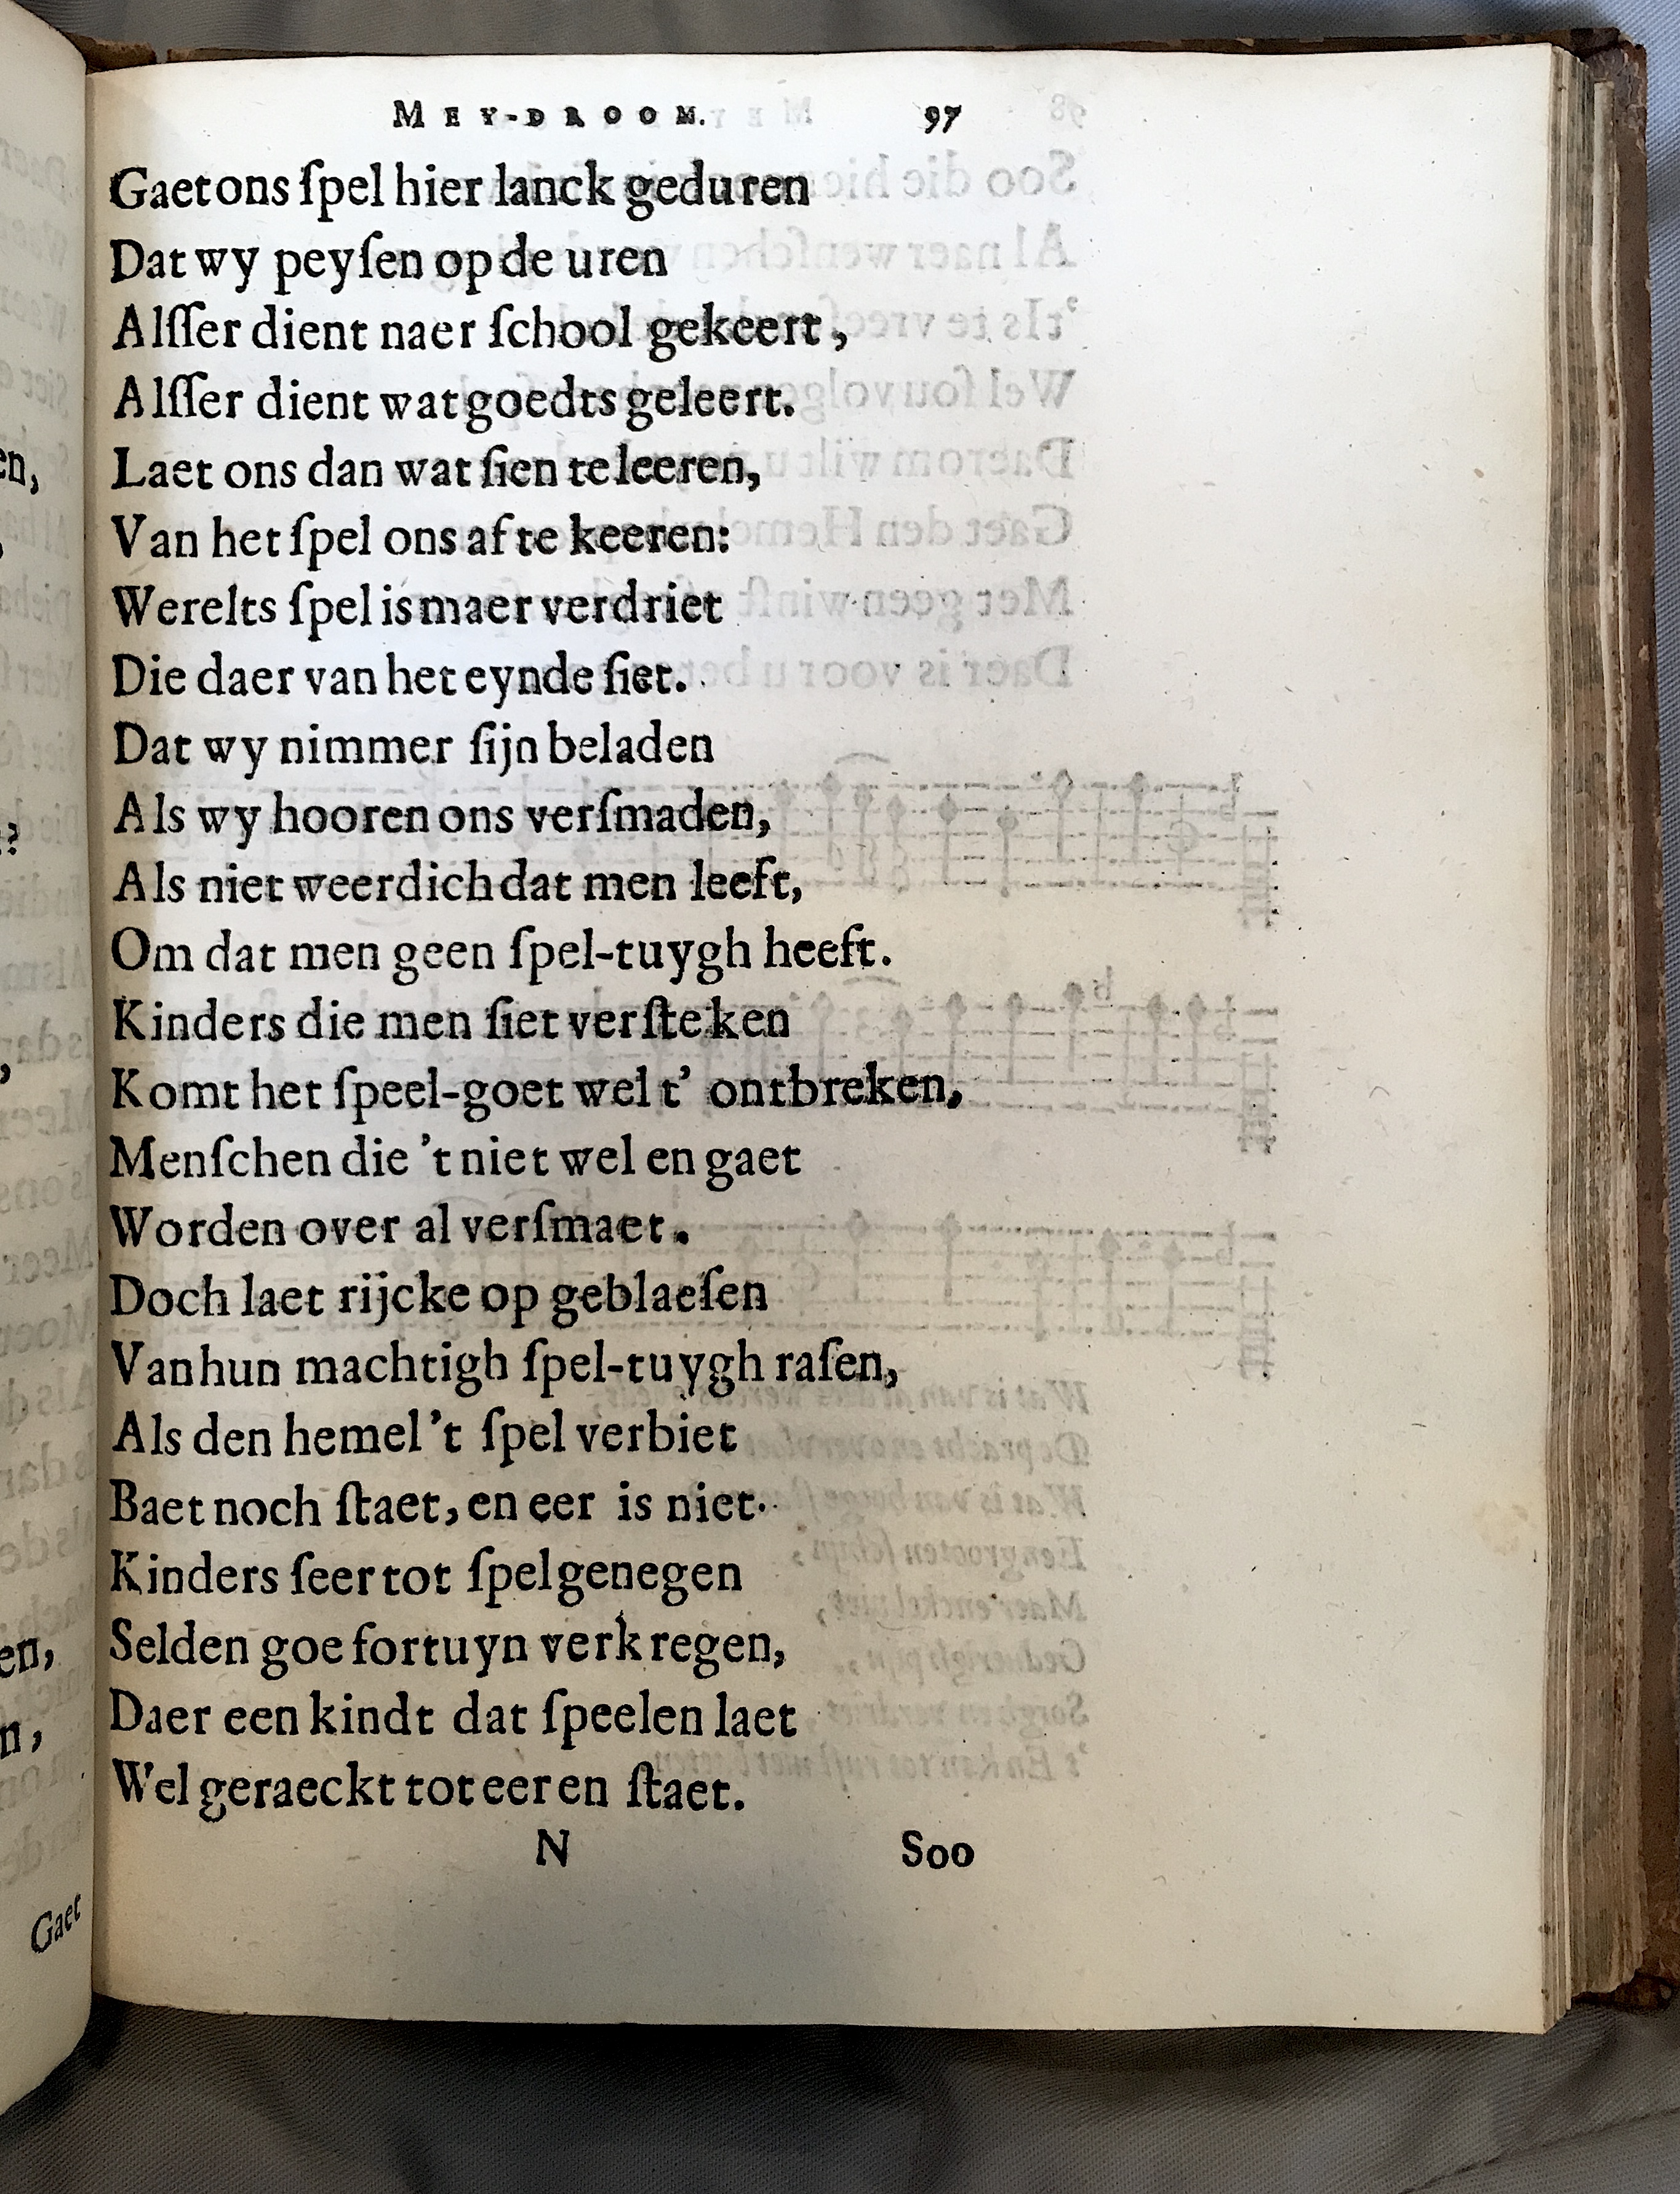 MEY-DROOM. 97
Gaet ons ſpel hier lanck geduren
Dat wy peyſen op de uren
Alſſer dient naer ſchool gekeert,
Alſſer dient wat goedts geleert.
Laet ons dan wat ſien te leeren,
Van het ſpel ons af te keeren:
Werelts ſpel is maer verdriet
Die daer van het eynde ſiet.
Dat wy nimmer ſijn beladen
Als wy hooren ons verſmaden,
Als niet weerdich dat men leeft,
Om dat men geen ſpel-tuygh heeft.
Kinders die men ſiet verſteken
Komt het ſpeel-goet wel t' ontbreken,
Menſchen die 't niet wel en gaet
Worden over al verſmaet.
Doch laet rijcke op geblaeſen
Van hun machtigh ſpel-tuygh raſen,
Als den hemel 't ſpel verbiet
Baet noch ſtaet, en eer is niet.
Kinders ſeer tot ſpel genegen
Selden goe fortuyn verkregen,
Daer een kindt dat ſpeelen laet
Wel geraeckt tot eer en ſtaet.
N Soo
Gaet